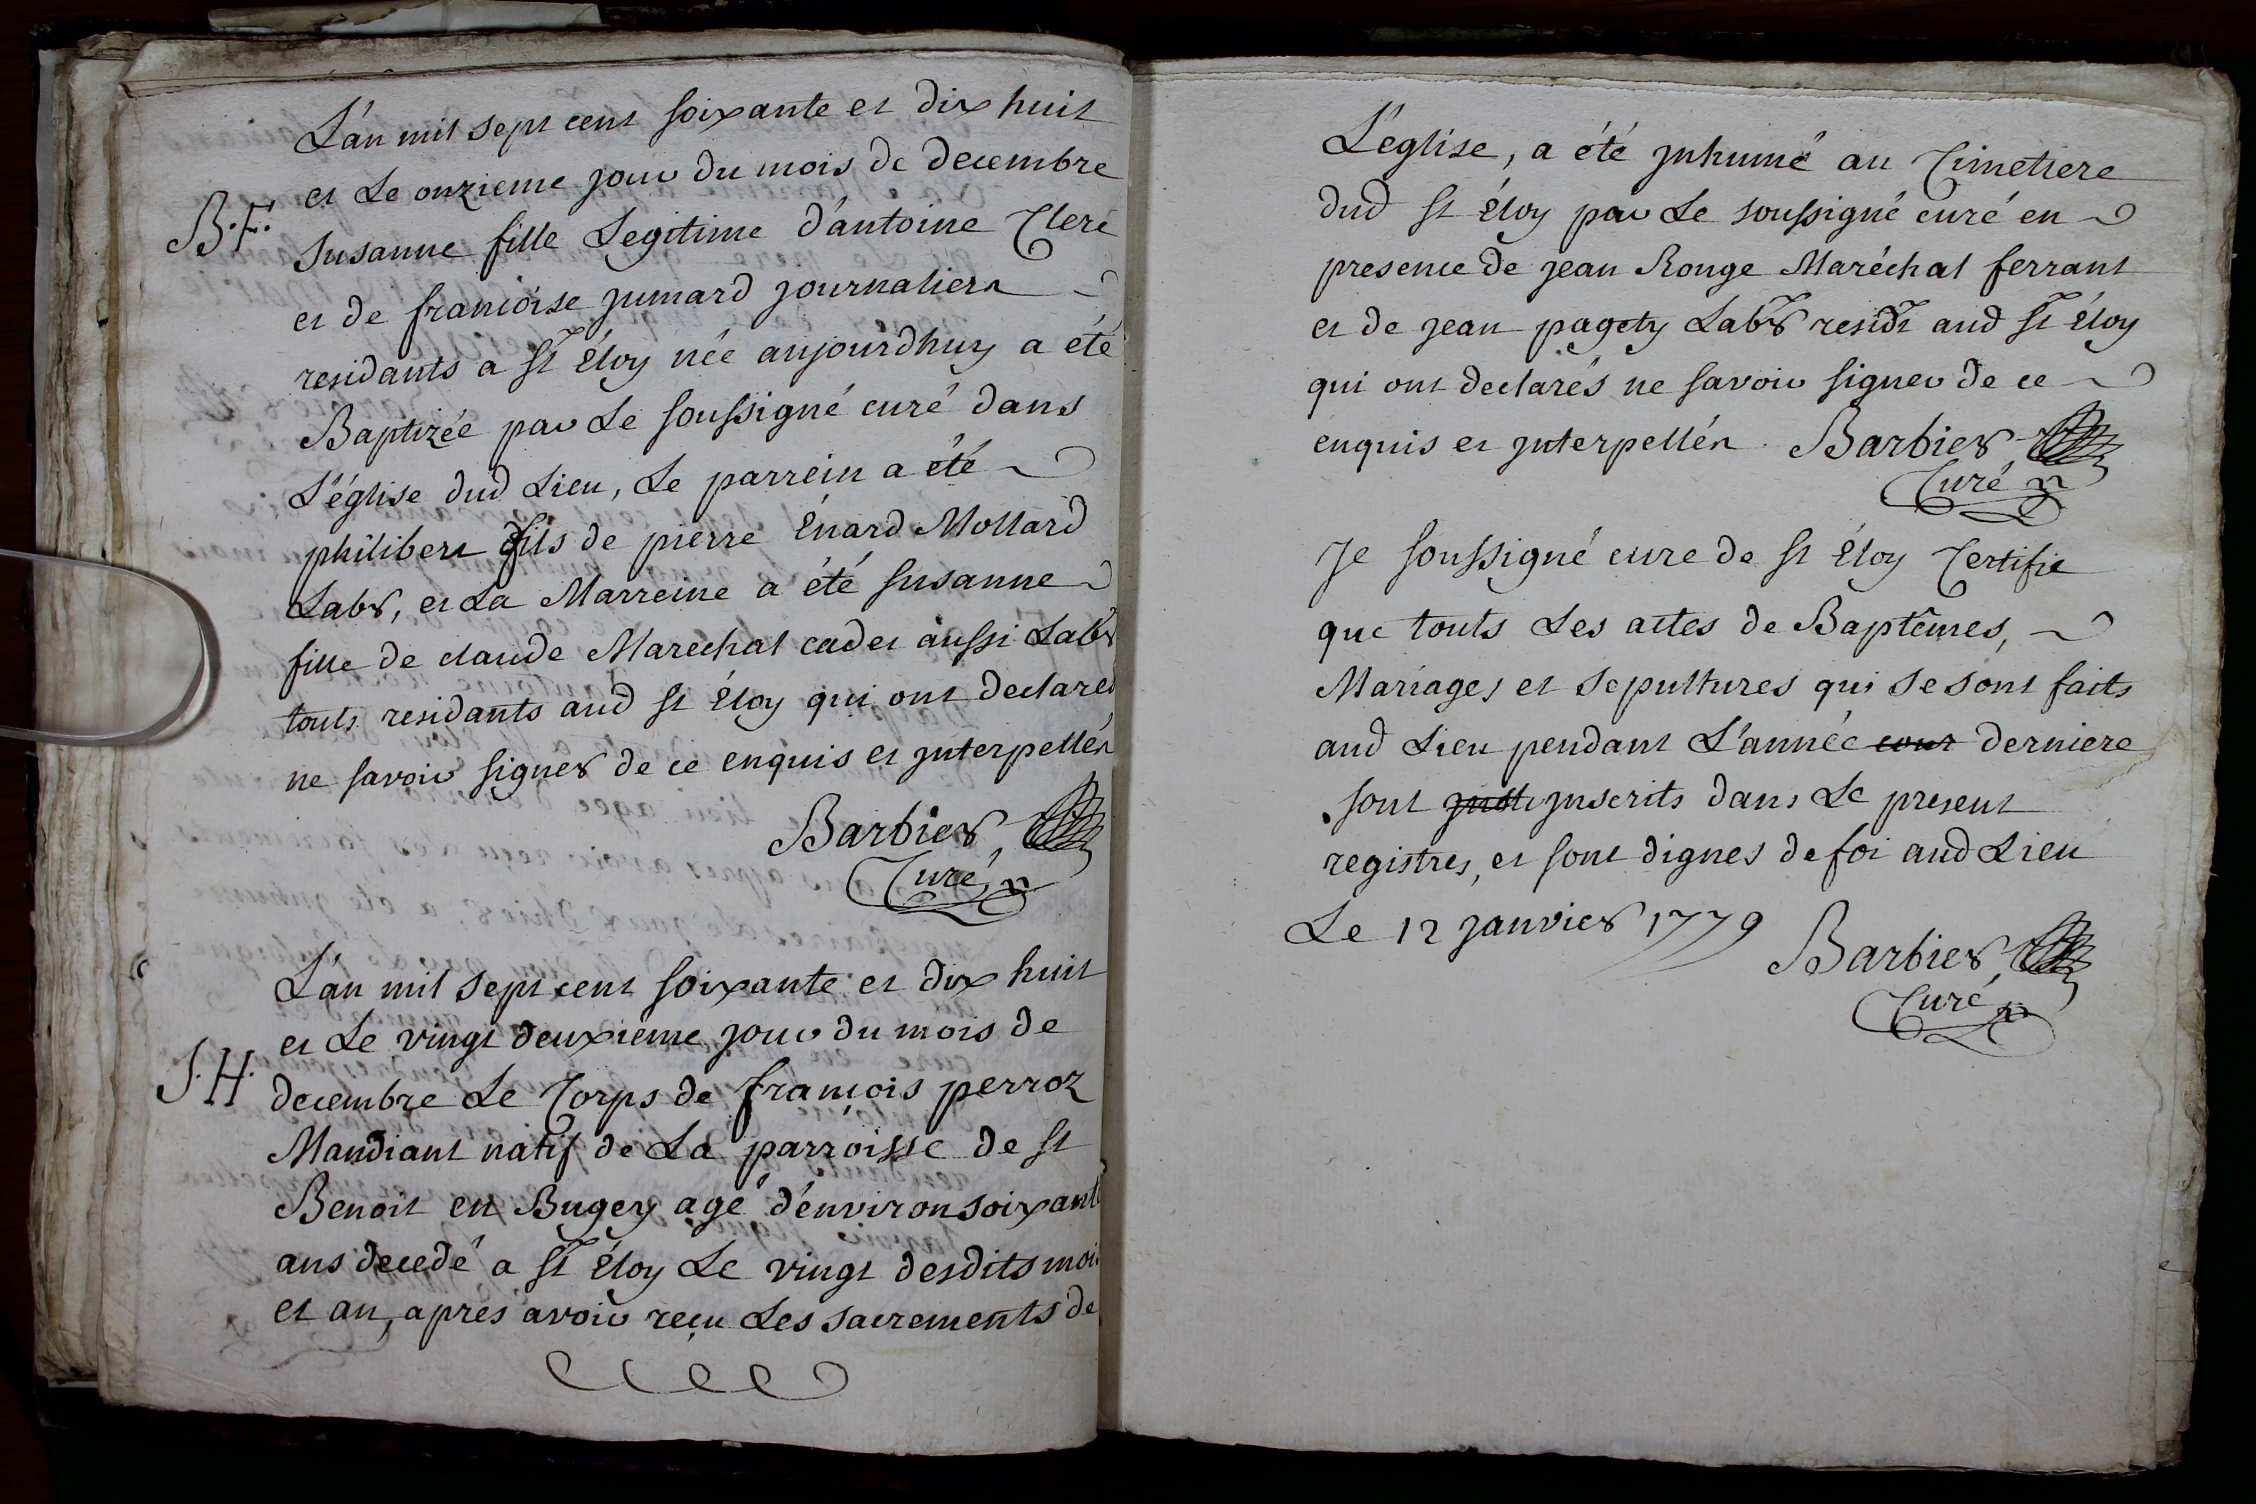 L'an mil sept cent soixante et dix huit
et Le onzieme jour du mois de decembre
B.F.
Susanne fille Legitime d'antoine Clerc
et de francoise jumard journaliers
residants a St Éloy née aujourdhuy a été
Baptizée par Le soussigné curé dans
L'église dud Lieu, Le parrein a été
philibert fils de pierre Énard Mollard
Labr, et La Marreine a été susanne
fille de claude Marechal cadet aussi Labr
touts residants aud St Éloy qui ont declarés
ne savoir signer de ce enquis et jnterpellés
Barbier
Curé
L'an mil sept cent soixante et dix huit
et Le vingt deuxieme jour du mois de
S.H.
decembre Le Corps de françois perroz
Mandiant natif de La parroisse de St
Benoit en Bugey agé d'environ soixante
ans decedé a St Éloy Le vingt desdits mois
et an, apres avoir reçu Les sacrements de
L'eglise, a été jnhumé au Cimetiere
dud St Éloy par Le soussigné curé en
presence de jean Ronge Maréchal ferrant
et de jean pagety Labr residt aud St Éloy
qui ont declarés ne savoir signer de ce
enquis et jnterpellés Barbier
Curé
Je soussigné cure de St Éloy Certifie
que touts Les actes de Baptêmes,
Mariages et sepultures qui se sont faits
aud Lieu pendant L'année cour derniere
sont jnscrits dans Le present
registres, et sont dignes de foi aud Lieu
Le 12 janvier 1779
Barbier
Curé